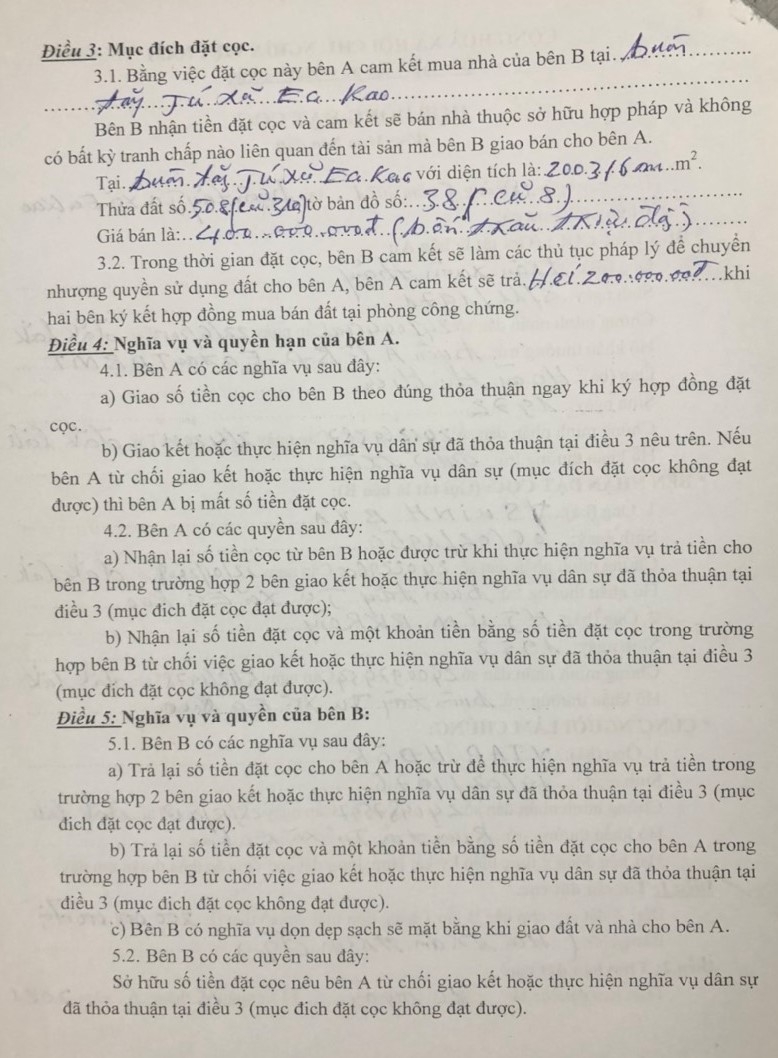 Điều 3: Mục đích đặt cọc.
3.1. Bằng việc đặt cọc này bên A cam kết mua nhà của bên B tại. buôn
tây Tú xã Ea Kao
Bên B nhận tiền đặt cọc và cam kết sẽ bán nhà thuộc sở hữu hợp pháp và không
có bất kỳ tranh chấp nào liên quan đến tài sản mà bên B giao bán cho bên A.
Tại. buôn tây Tú xã Ea Kao với diện tích là: 200.3 m².
Thửa đất số 508 (cũ 31a) tờ bản đồ số: 38 (cũ 8)
Giá bán là: 400.000.000đ (bốn trăm triệu
3.2. Trong thời gian đặt cọc, bên B cam kết sẽ làm các thủ tục pháp lý để chuyển
nhượng quyền sử dụng đất cho bên A, bên A cam kết sẽ trả. Hết 200.000.000đ khi
hai bên ký kết hợp đồng mua bán đất tại phòng công chứng.
Điều 4: Nghĩa vụ và quyền hạn của bên A.
4.1. Bên A có các nghĩa vụ sau đây:
a) Giao số tiền cọc cho bên B theo đúng thỏa thuận ngay khi ký hợp đồng đặt
cọc.
b) Giao kết hoặc thực hiện nghĩa vụ dân sự đã thỏa thuận tại điều 3 nêu trên. Nếu
bên A từ chối giao kết hoặc thực hiện nghĩa vụ dân sự (mục đích đặt cọc không đạt
được) thì bên A bị mất số tiền đặt cọc.
4.2. Bên A có các quyền sau đây:
a) Nhận lại số tiền cọc từ bên B hoặc được trừ khi thực hiện nghĩa vụ trả tiền cho
bên B trong trường hợp 2 bên giao kết hoặc thực hiện nghĩa vụ dân sự đã thỏa thuận tại
điều 3 (mục đich đặt cọc đạt được);
b) Nhận lại số tiền đặt cọc và một khoản tiền bằng số tiền đặt cọc trong trường
hợp bên B từ chối việc giao kết hoặc thực hiện nghĩa vụ dân sự đã thỏa thuận tại điều 3
(mục đich đặt cọc không đạt được).
Điều 5: Nghĩa vụ và quyền của bên B:
5.1. Bên B có các nghĩa vụ sau đây:
a) Trả lại số tiền đặt cọc cho bên A hoặc trừ để thực hiện nghĩa vụ trả tiền trong
trường hợp 2 bên giao kết hoặc thực hiện nghĩa vụ dân sự đã thỏa thuận tại điều 3 (mục
đich đặt cọc đạt được).
b) Trả lại số tiền đặt cọc và một khoản tiền bằng số tiền đặt cọc cho bên A trong
trường hợp bên B từ chối việc giao kết hoặc thực hiện nghĩa vụ dân sự đã thỏa thuận tại
điều 3 (mục đich đặt cọc không đạt được).
c) Bên B có nghĩa vụ dọn dẹp sạch sẽ mặt bằng khi giao đất và nhà cho bên A.
5.2. Bên B có các quyền sau đây:
Sở hữu số tiền đặt cọc nêu bên A từ chối giao kết hoặc thực hiện nghĩa vụ dân sự
đã thỏa thuận tại điều 3 (mục đich đặt cọc không đạt được).